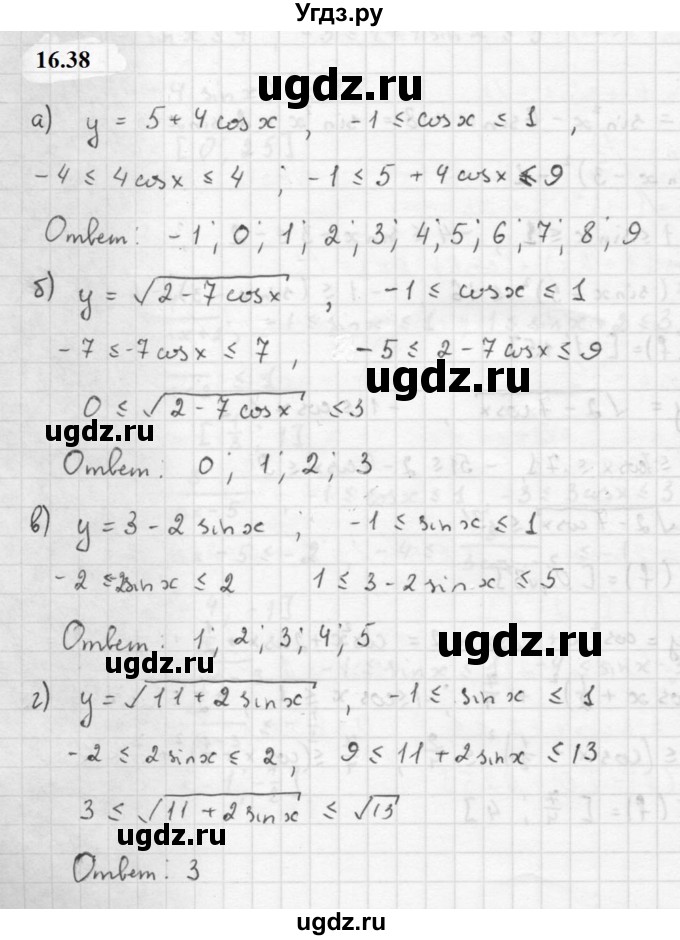 Угдз.ру
16.38
ugdz.ru
а) y = 5 + 4 cos x , -1 ≤ cos x ≤ 1 ,
-4 ≤ 4 cos x ≤ 4 ; -1 ≤ 5 + 4 cos x ≤ 9
Ответ: -1; 0; 1; 2; 3; 4; 5; 6; 7; 8; 9
б) y = √(2 - 7 cos x) , -1 ≤ cos x ≤ 1
-7 ≤ -7 cos x ≤ 7 , -5 ≤ 2 - 7 cos x ≤ 9
ugdz.ru
0 ≤ √(2 - 7 cos x) ≤ 3
ugdz.ru
Ответ: 0; 1; 2; 3
в) y = 3 - 2 sin x ; -1 ≤ sin x ≤ 1
-2 ≤ 2 sin x ≤ 2 1 ≤ 3 - 2 sin x ≤ 5
Ответ: 1; 2; 3; 4; 5
ugdz.ru
ugdz.ru
г) y = √(11 + 2 sin x) , -1 ≤ sin x ≤ 1
-2 ≤ 2 sin x ≤ 2, 9 ≤ 11 + 2 sin x ≤ 13
3 ≤ √(11 + 2 sin x) ≤ √13
ugdz.ru
Ответ: 3
ugdz.ru